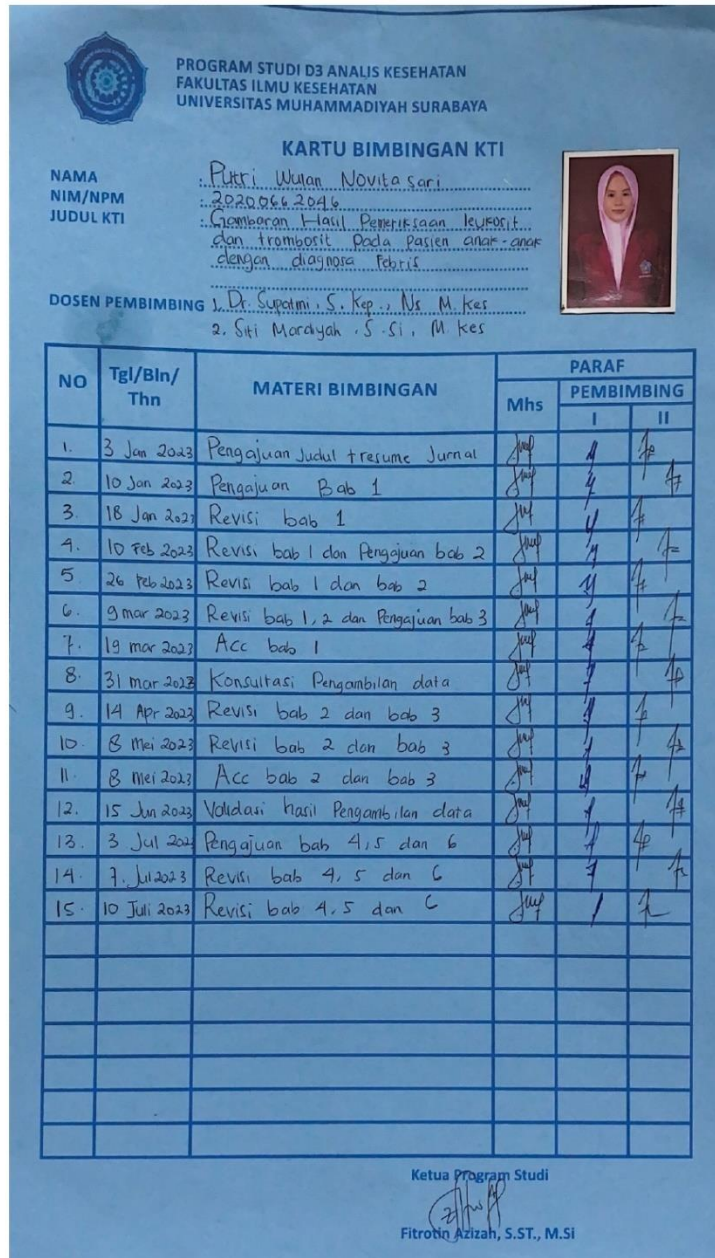 PROGRAM STUDI D3 ANALIS KESEHATAN
FAKULTAS ILMU KESEHATAN
UNIVERSITAS MUHAMMADIYAH SURABAYA
KARTU BIMBINGAN KTI
NAMA : Putri Wulan Novitasari
NIM/NPM : 20200662046
JUDUL KTI : Gambaran Hasil Pemeriksaan leukosit
dan trombosit pada Pasien anak-anak
dengan diagnosa Febris
DOSEN PEMBIMBING 1. Dr. Supatmi, S. Kep., Ns M. Kes
2. Siti Mardiyah, S.Si, M. Kes
NO Tgl/Bln/Thn MATERI BIMBINGAN PARAF
Mhs PEMBIMBING
I II
1. 3 Jan 2023 Pengajuan Judul + resume Jurnal
2. 10 Jan 2023 Pengajuan Bab 1
3. 18 Jan 2023 Revisi bab 1
4. 10 Feb 2023 Revisi bab 1 dan Pengajuan bab 2
5. 26 Feb 2023 Revisi bab 1 dan bab 2
6. 9 mar 2023 Revisi bab 1, 2 dan Pengajuan bab 3
7. 19 mar 2023 Acc bab 1
8. 31 mar 2023 Konsultasi Pengambilan data
9. 14 Apr 2023 Revisi bab 2 dan bab 3
10. 8 Mei 2023 Revisi bab 2 dan bab 3
11. 8 mei 2023 Acc bab 2 dan bab 3
12. 15 Jun 2023 Validasi hasil Pengambilan data
13. 3 Jul 202 Pengajuan bab 4,5 dan 6
14. 7. Jul 2023 Revisi bab 4, 5 dan 6
15. 10 Juli 2023 Revisi bab 4, 5 dan 6
Ketua Program Studi
Fitrotin Azizah, S.ST., M.Si